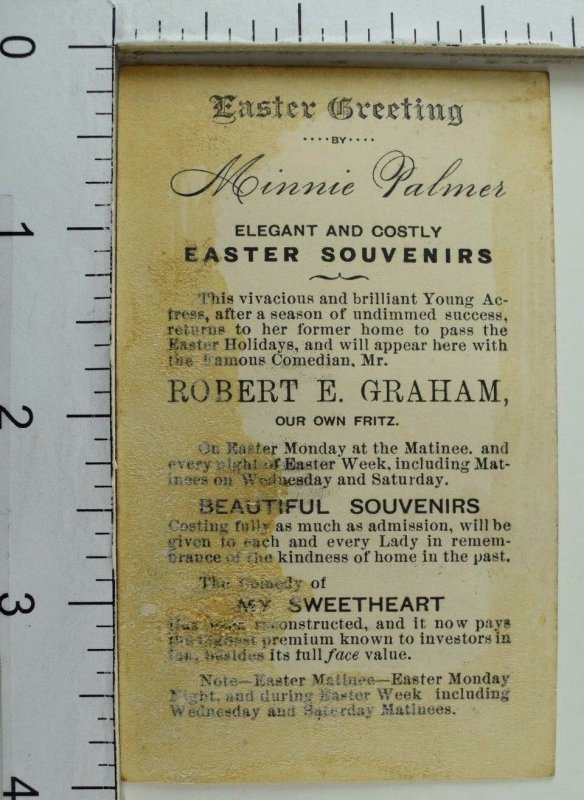 0
1
2
3
4
Easter Greeting
····BY····
Minnie Palmer
ELEGANT AND COSTLY
EASTER SOUVENIRS
This vivacious and brilliant Young Ac-
tress, after a season of undimmed success,
returns to her former home to pass the
Easter Holidays, and will appear here with
the Famous Comedian, Mr.
ROBERT E. GRAHAM,
OUR OWN FRITZ.
On Easter Monday at the Matinee, and
every night of Easter Week, including Mat-
inees on Wednesday and Saturday.
BEAUTIFUL SOUVENIRS
Costing fully as much as admission, will be
given to each and every Lady in remem-
brance of the kindness of home in the past.
The Comedy of
MY SWEETHEART
Has been reconstructed, and it now pays
the highest premium known to investors in
fun, besides its full face value.
Note—Easter Matinee—Easter Monday
Night, and during Easter Week including
Wednesday and Saturday Matinees.